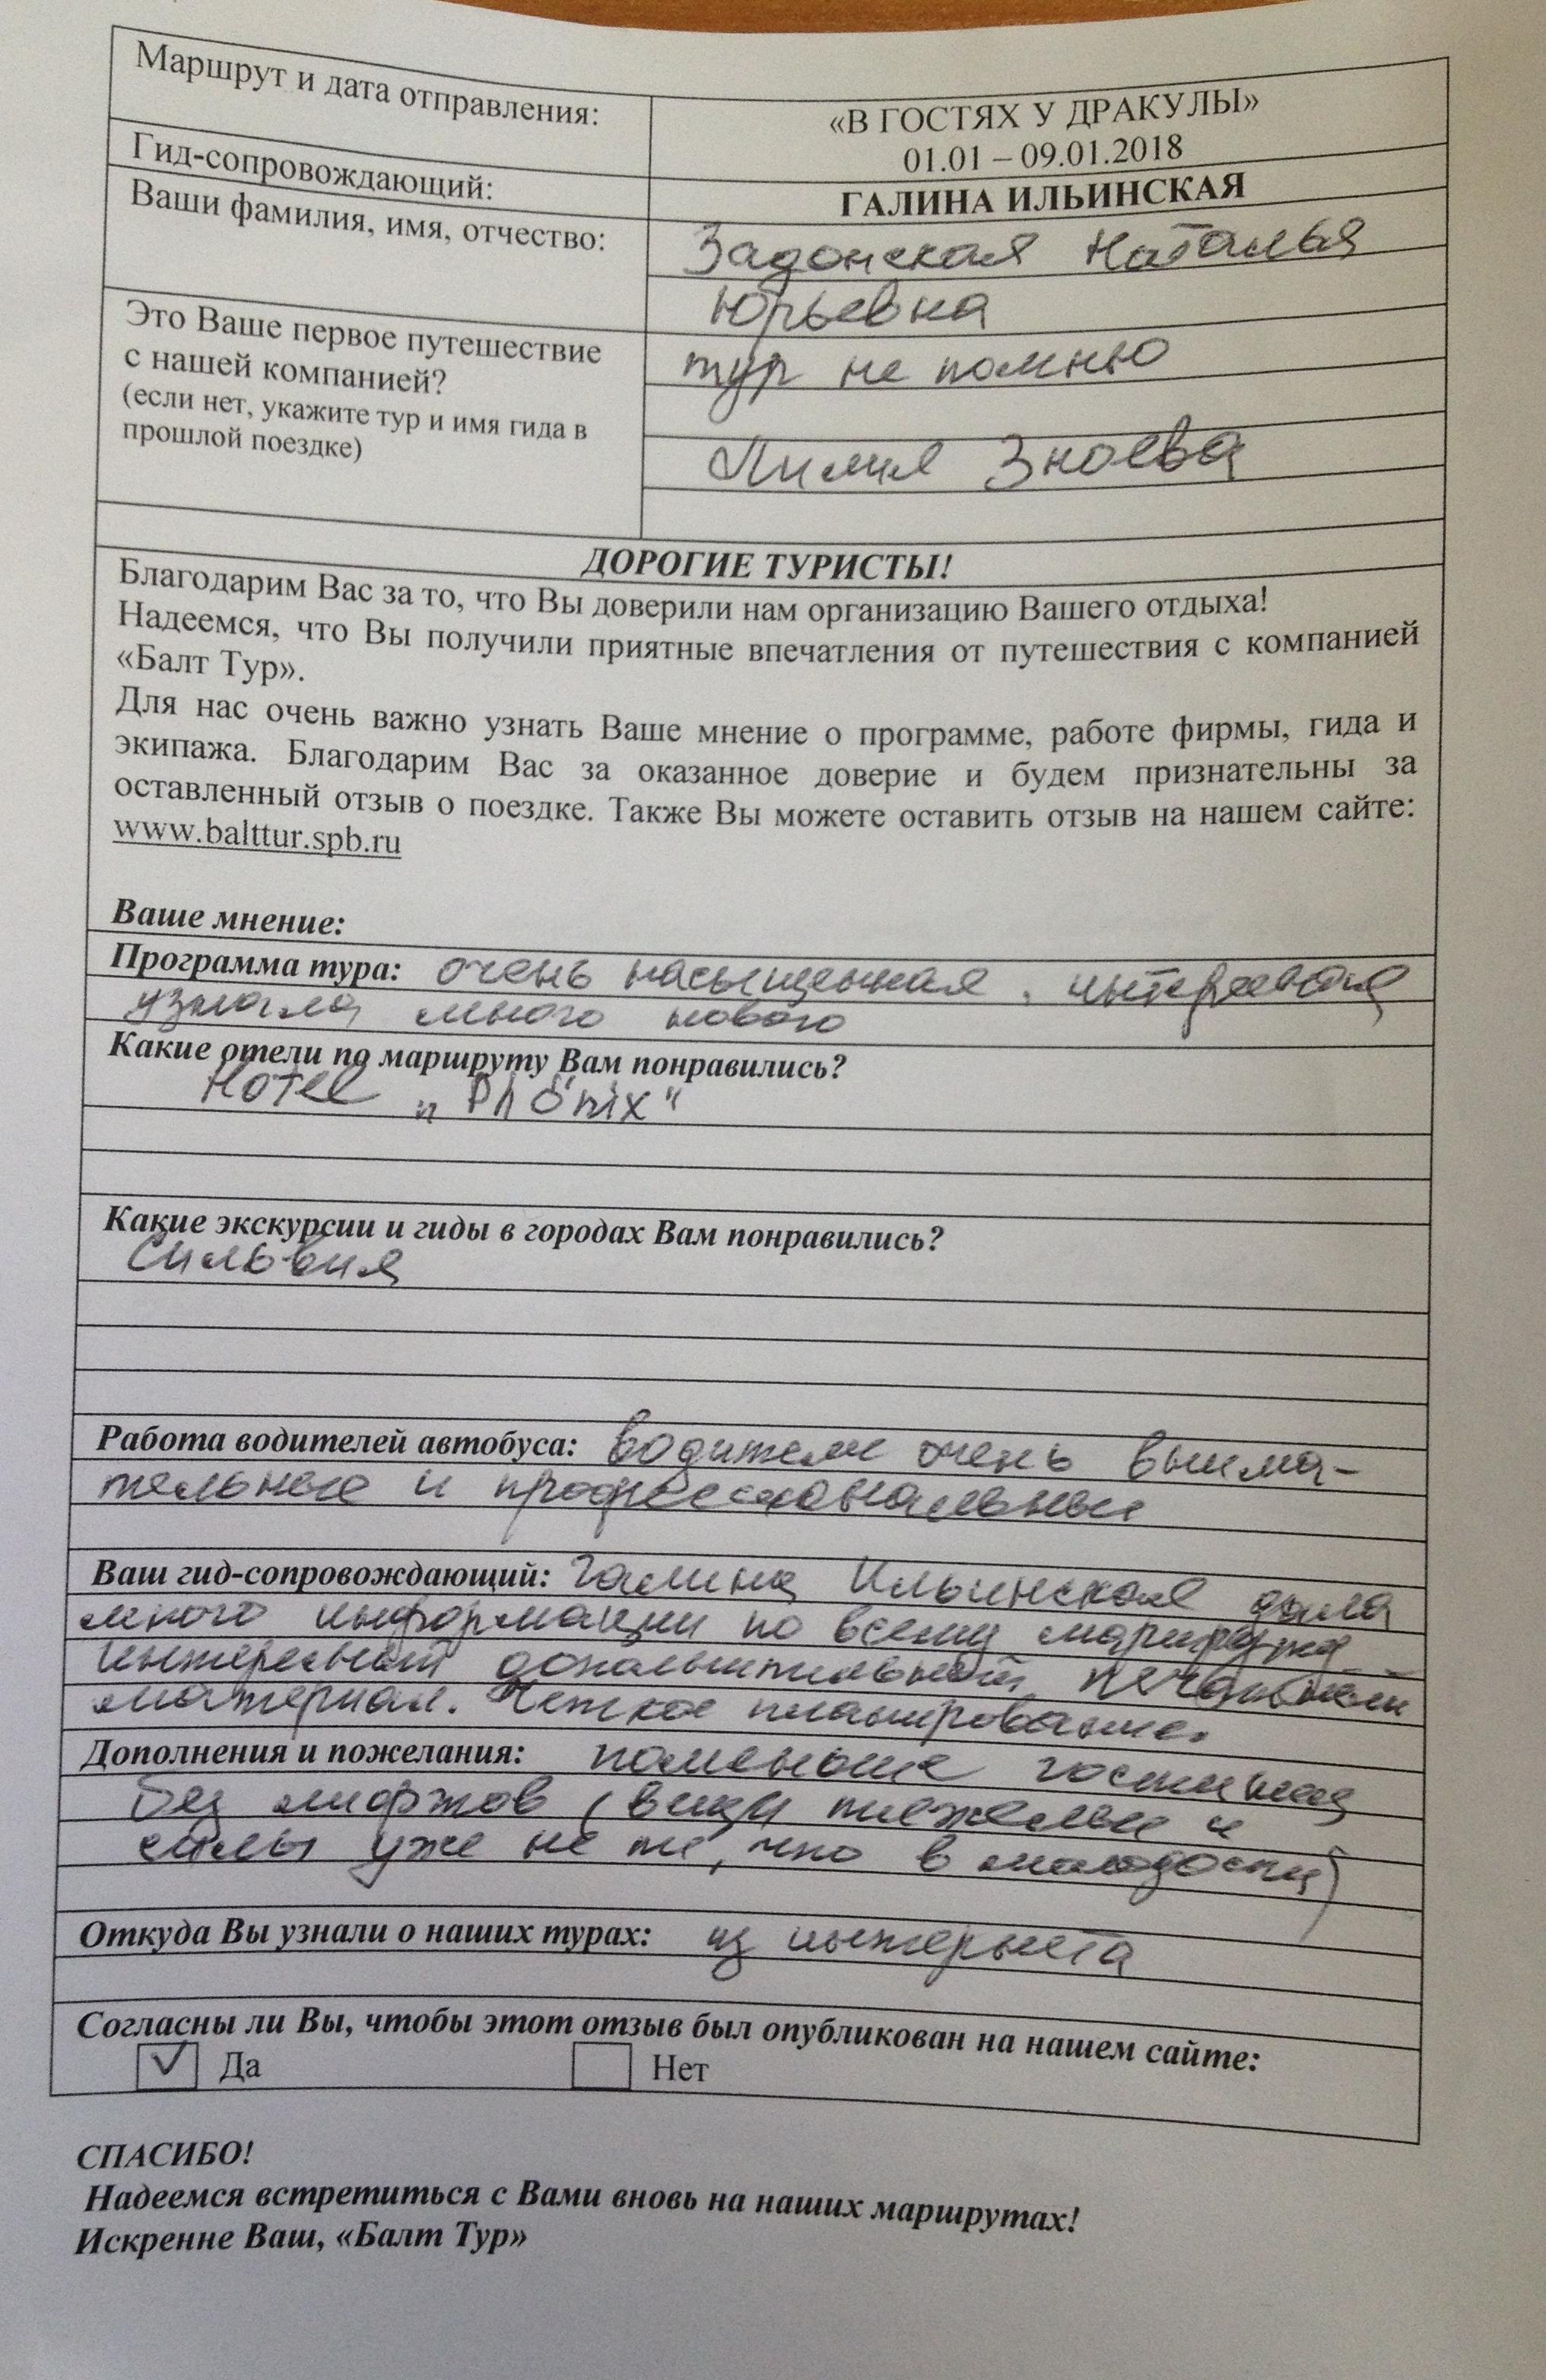 Маршрут и дата отправления:
«В ГОСТЯХ У ДРАКУЛЫ»
01.01 – 09.01.2018
Гид-сопровождающий:
ГАЛИНА ИЛЬИНСКАЯ
Ваши фамилия, имя, отчество:
Задонская Наталья
Юрьевна
Это Ваше первое путешествие
с нашей компанией?
(если нет, укажите тур и имя гида в
прошлой поездке)
тур не помню
Лилия Зноева
ДОРОГИЕ ТУРИСТЫ!
Благодарим Вас за то, что Вы доверили нам организацию Вашего отдыха!
Надеемся, что Вы получили приятные впечатления от путешествия с компанией
«Балт Тур».
Для нас очень важно узнать Ваше мнение о программе, работе фирмы, гида и
экипажа. Благодарим Вас за оказанное доверие и будем признательны за
оставленный отзыв о поездке. Также Вы можете оставить отзыв на нашем сайте:
www.balttur.spb.ru
Ваше мнение:
Программа тура: очень насыщенная,
узнала много нового
Какие отели по маршруту Вам понравились?
Hotel „Phönix"
Какие экскурсии и гиды в городах Вам понравились?
Сильвия
Работа водителей автобуса: водители очень внима-
тельные и профессиональные
Ваш гид-сопровождающий: Галина Ильинская дала
много информации по всему маршруту
интересный дополнительный печатный
материал. Четкое планирование.
Дополнения и пожелания: поменьше гостиниц
без лифтов (вещи тяжелые и
силы уже не те, что в молодости)
Откуда Вы узнали о наших турах: из интернета
Согласны ли Вы, чтобы этот отзыв был опубликован на нашем сайте:
✓ Да Нет
СПАСИБО!
Надеемся встретиться с Вами вновь на наших маршрутах!
Искренне Ваш, «Балт Тур»